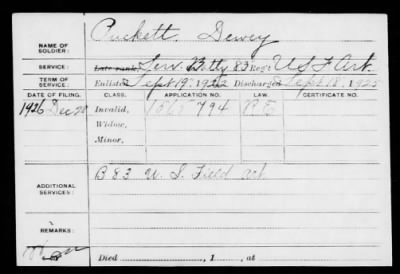 NAME OF SOLDIER: Puckett, Dewey
SERVICE: Late rank, Serv. Btty 83 Reg't U S F Art.
TERM OF SERVICE: Enlisted Sept 19, 1922 Discharged Sept 18, 1925
DATE OF FILING. CLASS. APPLICATION NO. LAW. CERTIFICATE NO.
1926 Dec 20 Invalid, 1565794
Widow,
Minor,
ADDITIONAL SERVICES: B 83 U. S. Field Art
REMARKS:
Died , 1 , at